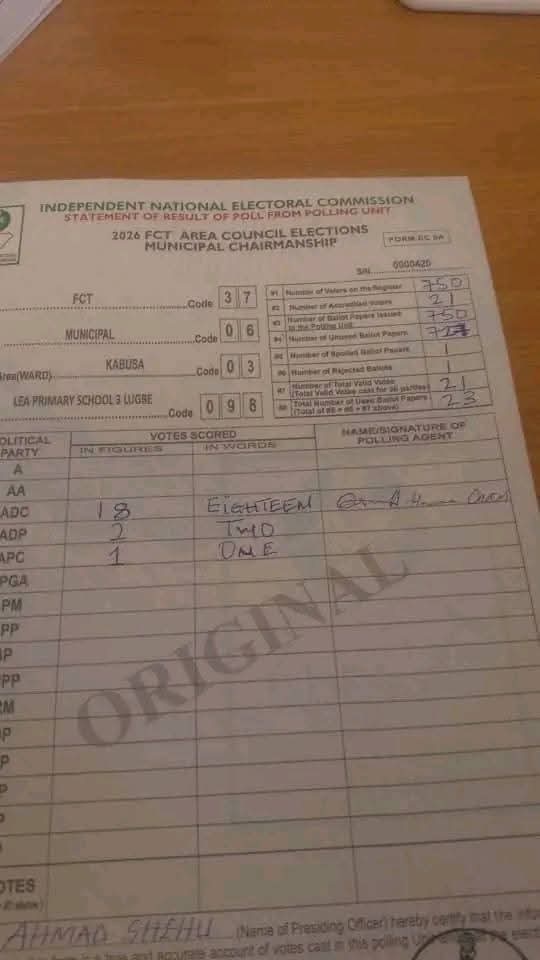 INDEPENDENT NATIONAL ELECTORAL COMMISSION
STATEMENT OF RESULT OF POLL FROM POLLING UNIT
2026 FCT AREA COUNCIL ELECTIONS
MUNICIPAL CHAIRMANSHIP
FORM EC 8A
S/N 0000420
FCT Code 3 7
MUNICIPAL Code 0 6
Area(WARD). KABUSA Code 0 3
LEA PRIMARY SCHOOL 3 LUGBE Code 0 9 8
#1 Number of Voters on the Register 750
#2 Number of Accredited Voters 21
#3 Number of Ballot Papers Issued to the Polling Unit 750
#4 Number of Unused Ballot Papers 727
#5 Number of Spoiled Ballot Papers 1
#6 Number of Rejected Ballots 1
#7 Number of Total Valid Votes (Total Valid Votes cast for all parties) 21
#8 Total Number of Used Ballot Papers (Total of #5 + #6 + #7 above) 23
OLITICAL PARTY VOTES SCORED NAME/SIGNATURE OF POLLING AGENT
IN FIGURES IN WORDS
A
AA
ADC 18 EIGHTEEN
ADP 2 TWO
APC 1 ONE
PGA
PM
PP
P
PP
RM
P
P
P
P
ORIGINAL
OTES
AHMAD SHEHU (Name of Presiding Officer) hereby certify that the
is a true and accurate account of votes cast in this polling